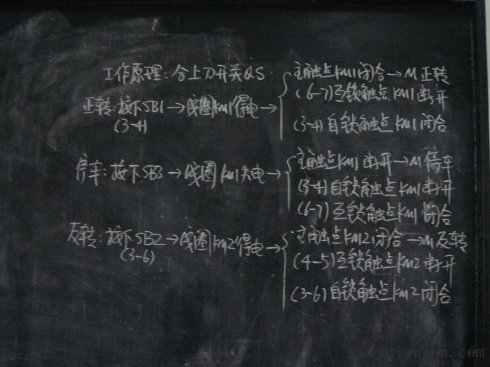 工作原理：合上刀开关QS
正转：按下SB1→线圈KM1得电→
(3-4)
主触点KM1闭合→M正转
(6-7)互锁触点KM1断开
(3-4)自锁触点KM1闭合
停车：按下SB3→线圈KM1失电→
主触点KM1断开→M停车
(3-4)自锁触点KM1断开
(6-7)互锁触点KM1闭合
反转：按下SB2→线圈KM2得电→
(3-6)
主触点KM2闭合→M反转
(4-5)互锁触点KM2断开
(3-6)自锁触点KM2闭合